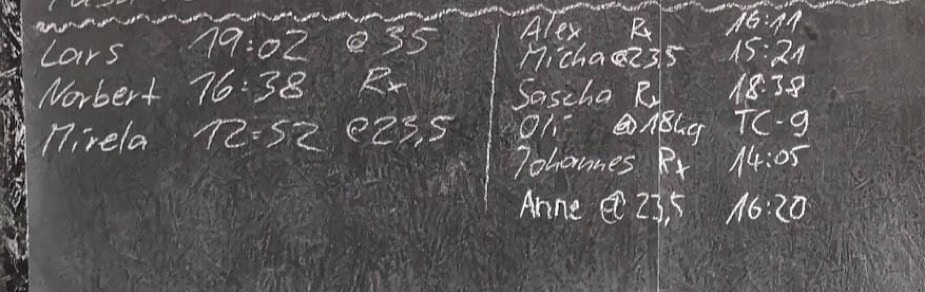 Lars 19:02 @ 35
Norbert 16:38 Rx
Mirela 12:52 @23,5
Alex Rx 16:11
Micha @23,5 15:21
Sascha Rx 18:38
Oli @18kg TC-9
Johannes Rx 14:05
Anne @ 23,5 16:20